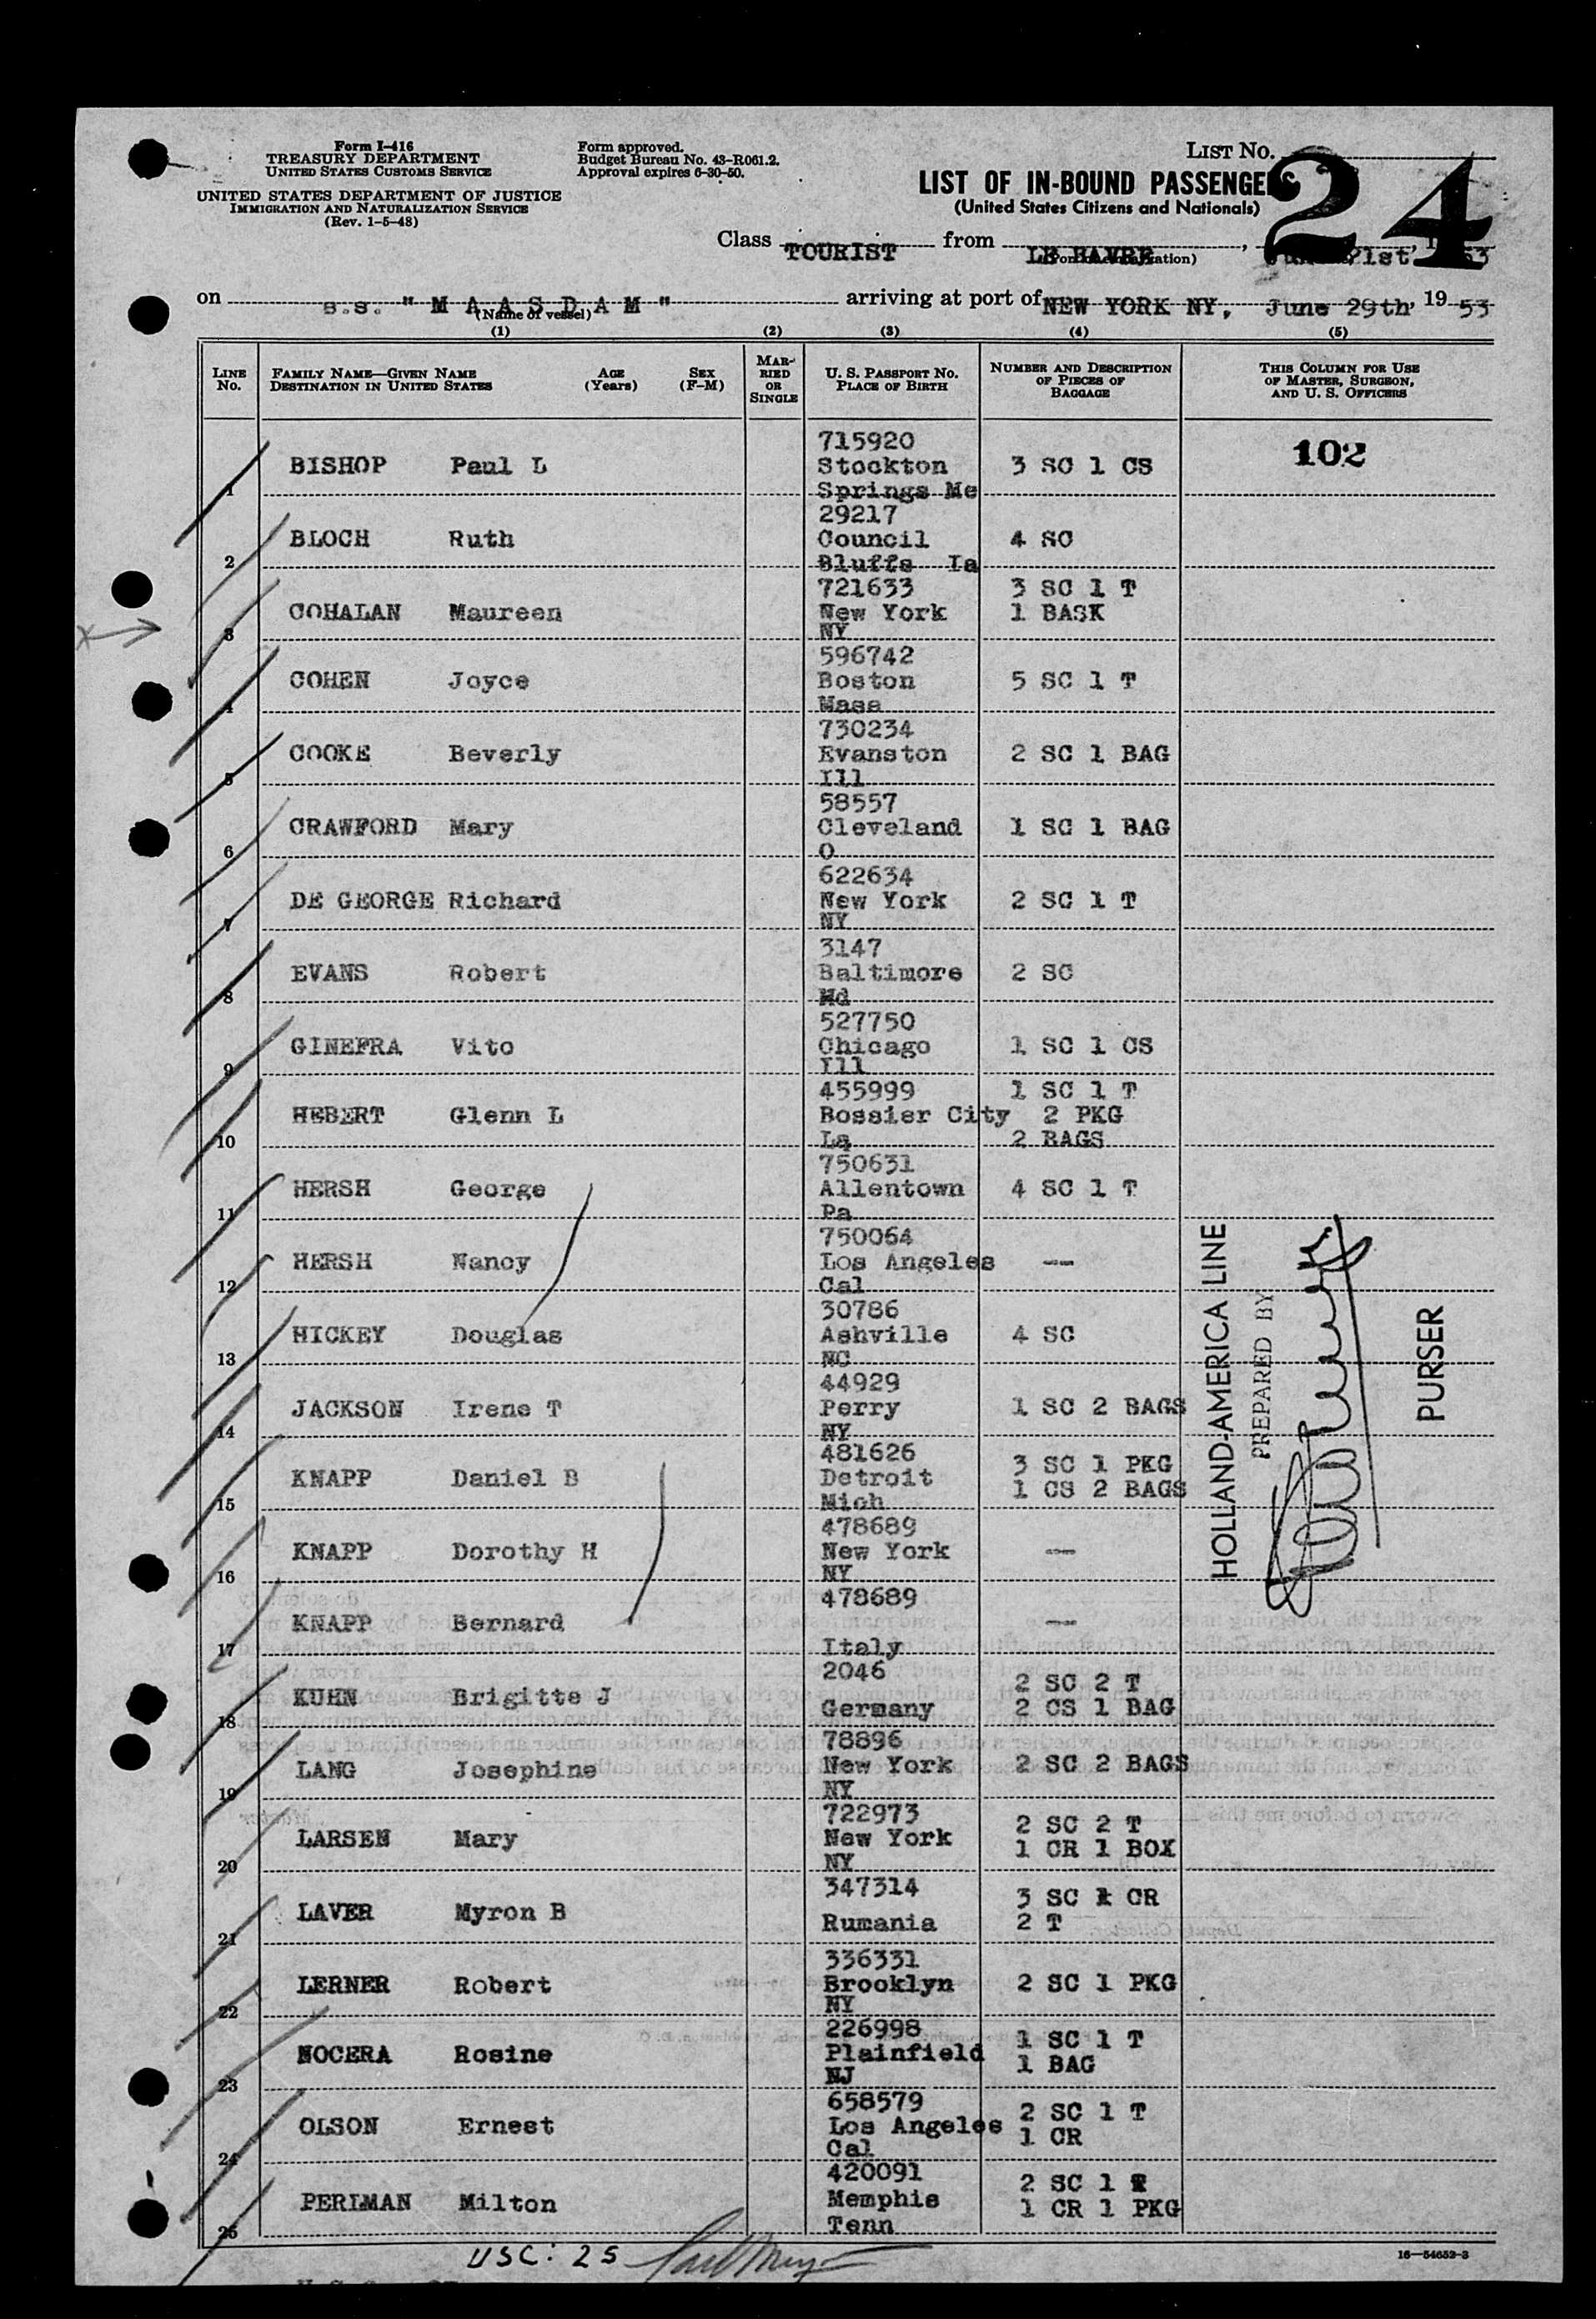 Form I-416
TREASURY DEPARTMENT
UNITED STATES CUSTOMS SERVICE
UNITED STATES DEPARTMENT OF JUSTICE
IMMIGRATION AND NATURALIZATION SERVICE
(Rev. 1-5-48)
Form approved.
Budget Bureau No. 43-R061.2.
Approval expires 6-30-50.
LIST NO. 24
LIST OF IN-BOUND PASSENGERS
(United States Citizens and Nationals)
Class TOURIST from LE HAVRE, 21st, 53
on s.s. "MAASDAM" arriving at port of NEW YORK NY, June 29th, 1953
(Name of vessel)
(1) (2) (3) (4) (5)
LINE No. FAMILY NAME—GIVEN NAME DESTINATION IN UNITED STATES AGE (Years) SEX (F-M) MARRIED OR SINGLE U. S. PASSPORT NO. PLACE OF BIRTH NUMBER AND DESCRIPTION OF PIECES OF BAGGAGE THIS COLUMN FOR USE OF MASTER, SURGEON, AND U. S. OFFICERS
1 BISHOP Paul L 715920 Stockton Springs Me 3 SC 1 CS 102
2 BLOCH Ruth 29217 Council Bluffs Ia 4 SC
3 COHALAN Maureen 721633 New York NY 3 SC 1 T 1 BASK
4 COHEN Joyce 596742 Boston Mass 5 SC 1 T
5 COOKE Beverly 730234 Evanston Ill 2 SC 1 BAG
6 CRAWFORD Mary 58557 Cleveland O 1 SC 1 BAG
7 DE GEORGE Richard 622634 New York NY 2 SC 1 T
8 EVANS Robert 3147 Baltimore Md 2 SC
9 GINEFRA Vito 527750 Chicago Ill 1 SC 1 CS
10 HEBERT Glenn L 455999 Bossier City La 1 SC 1 T 2 PKG 2 BAGS
11 HERSH George 750631 Allentown Pa 4 SC 1 T
12 HERSH Nancy 750064 Los Angeles Cal --
13 HICKEY Douglas 30786 Ashville NC 4 SC
14 JACKSON Irene T 44929 Perry NY 1 SC 2 BAGS
15 KNAPP Daniel B 481626 Detroit Mich 3 SC 1 PKG 1 CS 2 BAGS
16 KNAPP Dorothy H 478689 New York NY --
17 KNAPP Bernard 478689 Italy --
18 KUHN Brigitte J 2046 Germany 2 SC 2 T 2 CS 1 BAG
19 LANG Josephine 78896 New York NY 2 SC 2 BAGS
20 LARSEN Mary 722973 New York NY 2 SC 2 T 1 CR 1 BOX
21 LAVER Myron B 347314 Rumania 3 SC 1 CR 2 T
22 LERNER Robert 336331 Brooklyn NY 2 SC 1 PKG
23 NOCERA Rosine 226998 Plainfield NJ 1 SC 1 T 1 BAG
24 OLSON Ernest 658579 Los Angeles Cal 2 SC 1 T 1 CR
25 PERLMAN Milton 420091 Memphis Tenn 2 SC 1 T 1 CR 1 PKG
HOLLAND-AMERICA LINE
PREPARED BY
PURSER
USC: 25
16—54652-3